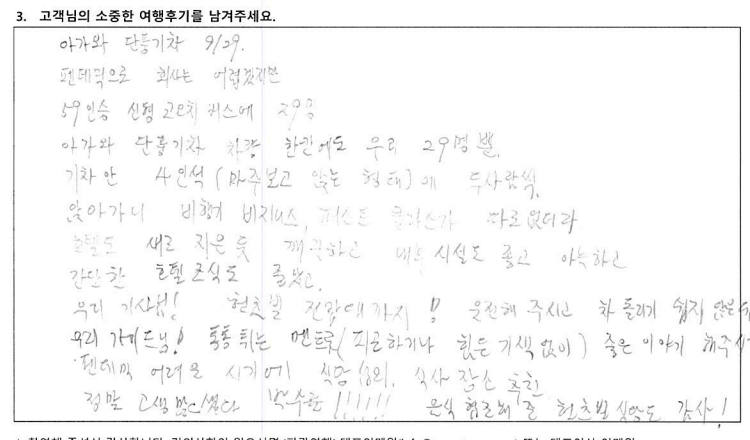 3. 고객님의 소중한 여행후기를 남겨주세요.
아가와 단풍기차 9/29.
펜데믹으로 회사는 어렵겠지만
59인승 신형 코치 버스에 29명
아가와 단풍기차 차량 한칸에도 우리 29명 뿔.
기차안 4인석 (마주보고 앉는 형태)에 두사람씩.
앉아가니 비행기 비지니스, 퍼스트 클라스가 따로 없더라
호텔도 새로 지은 듯 깨끗하고 내부 시설도 좋고 아늑하고
간단한 호텔 조식도 좋았고.
우리 기사님! 헌츠빌 전망대까지! 운전해 주시고 차 돌리기 쉽지 않은
우리 가이드님! 통통 튀는 멘트로(피곤하거나 힘든 기색 없이) 좋은 이야기 해주시
펜데믹 어려운 시기에 식당 섭외, 식사 장소
정말 고생 많으셨다 박수한 !!!!!!! 음식 협조해 준 헌츠빌 식당도 감사!